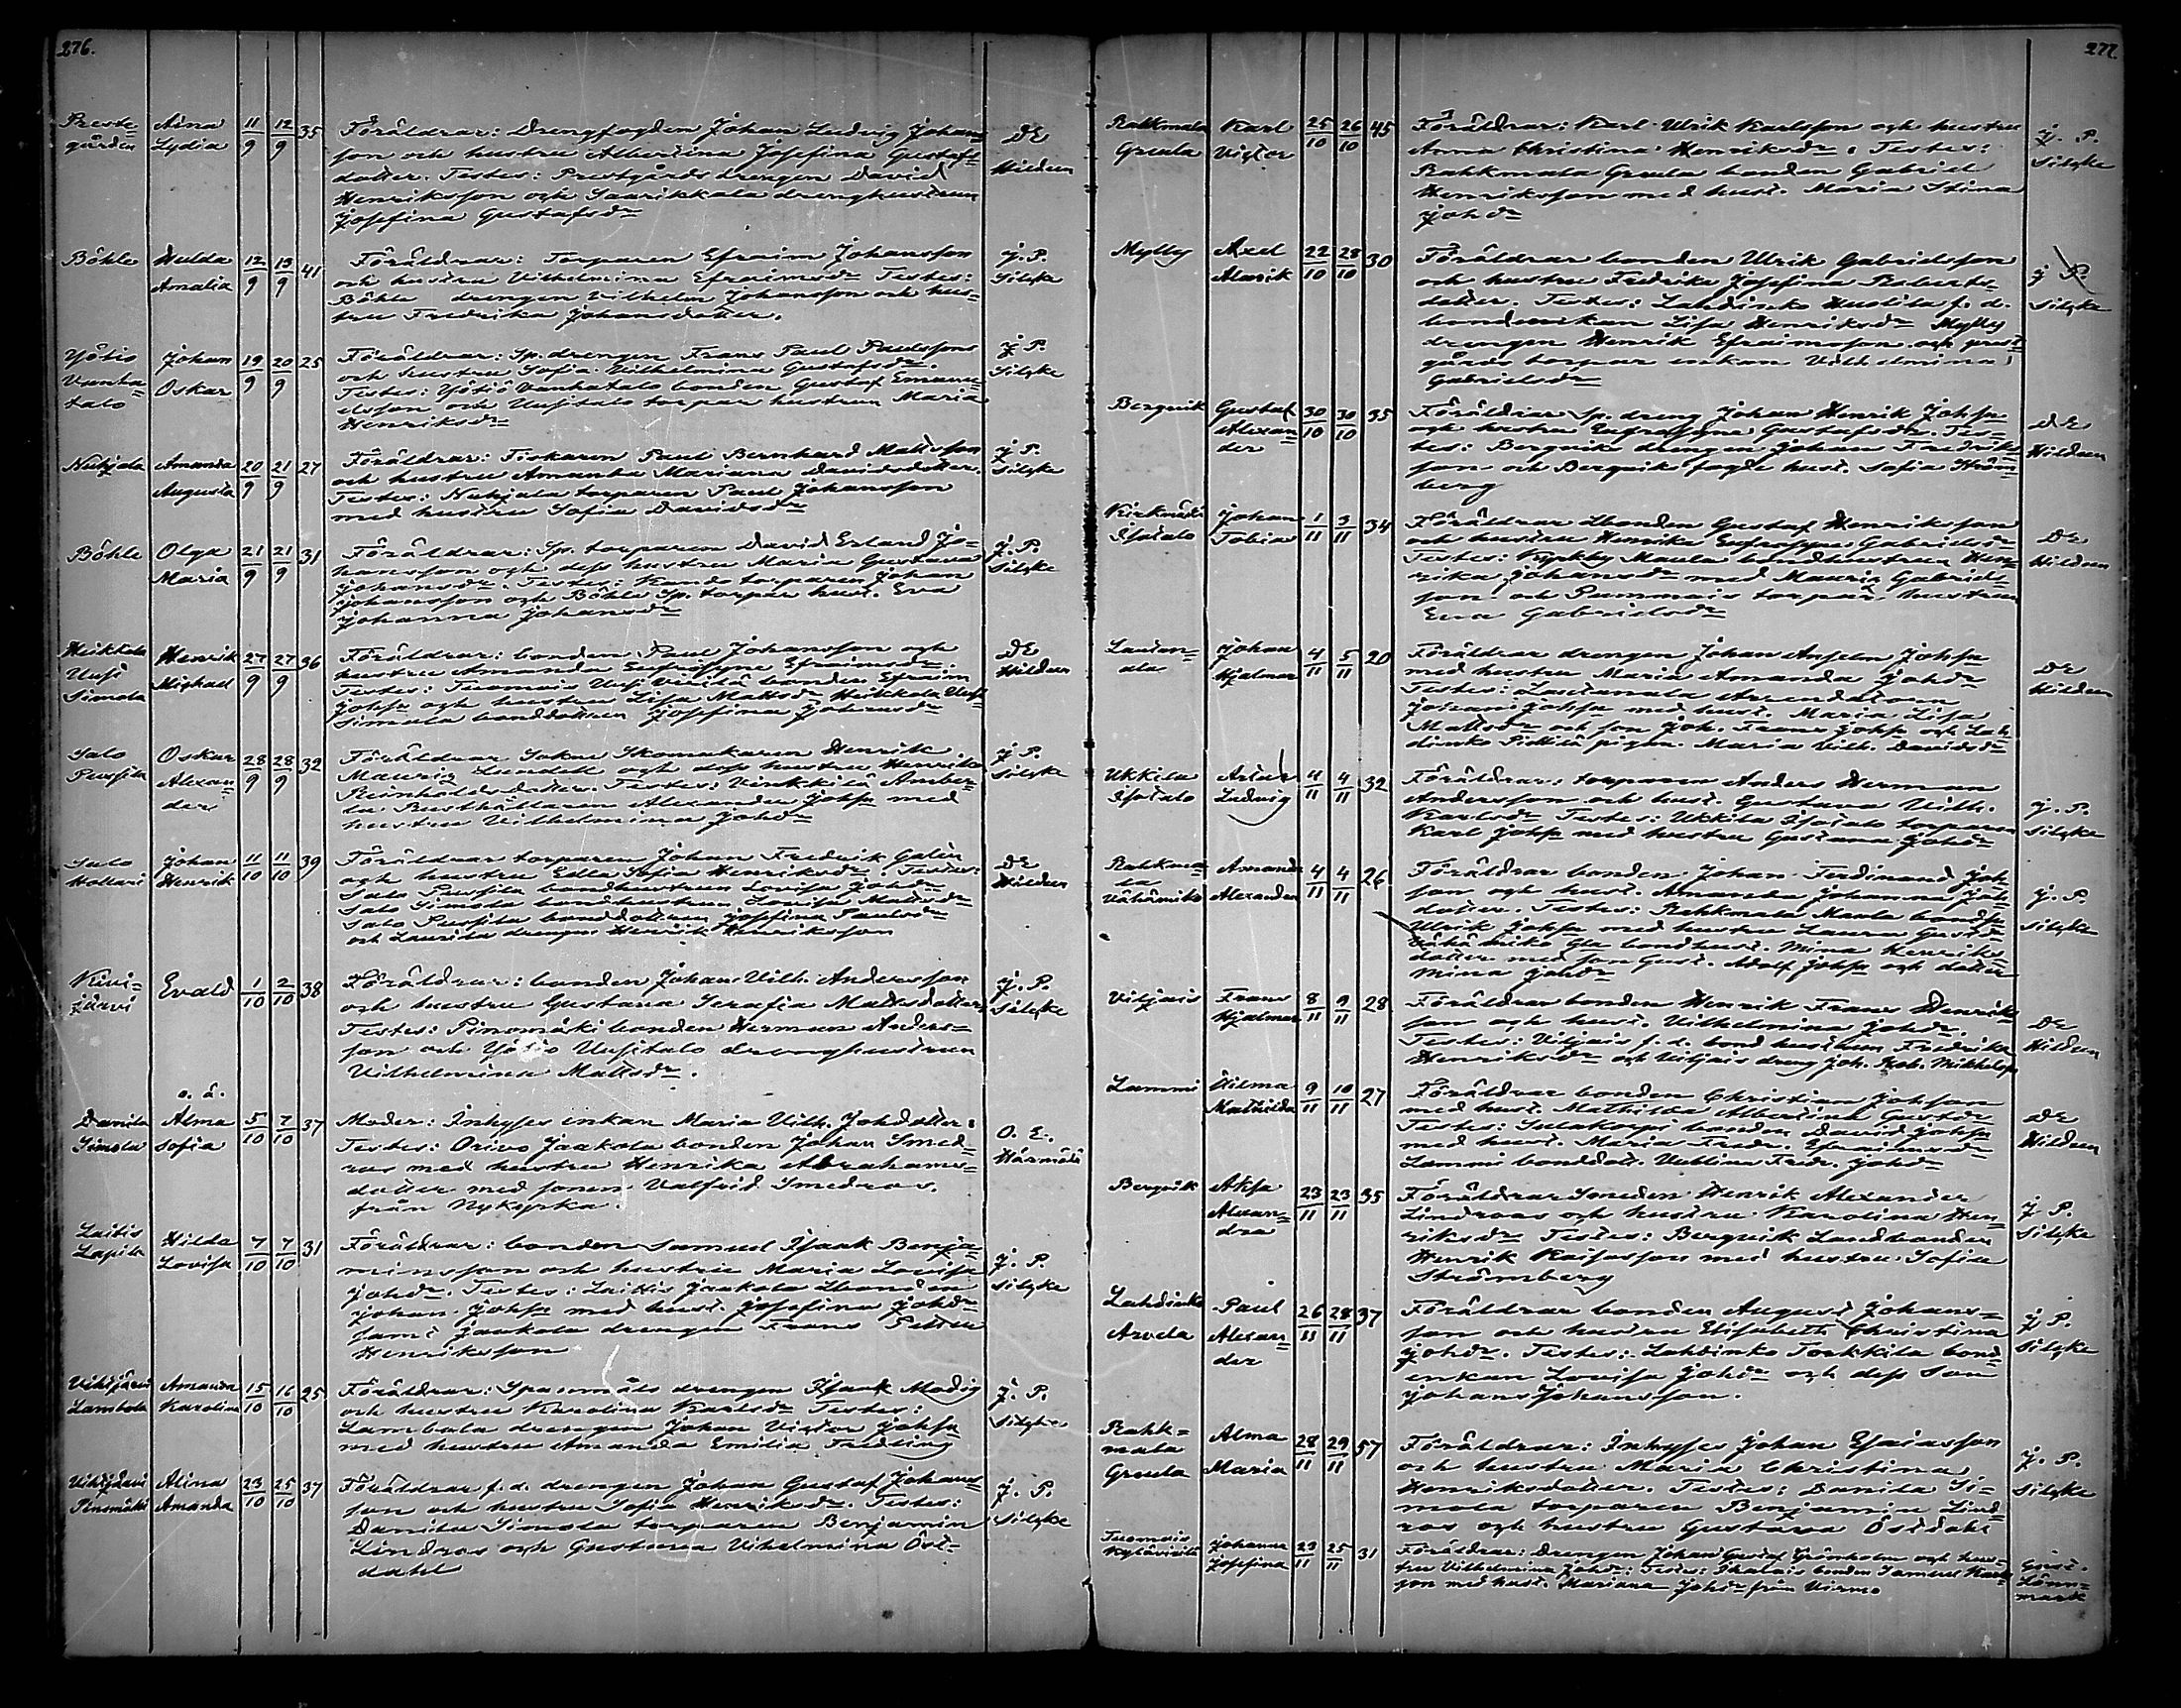 276.
Prestegården Aina Lydia 11/9 12/9 35 Föräldrar: Drengfogden Johan Ludvig Johans=
son och hustru Albertina Josefina Gustafs=
dotter. Testes: Prestgårds drengen David
Henriksson och Saarikkala drenghustrun
Josefina Gustafsdr
DE Hildén
Böhle Hulda Amalia 12/9 13/9 41 Föräldrar: Torparen Efraim Johansson
och hustru Vilhelmina Efraimsdr Testes:
Böhle drengen Vilhelm Johansson och hus=
tru Fredrika Johansdotter.
J. P. Sileke
Yötiö Vanha=talo Johan Oskar 19/9 20/9 25 Föräldrar: Sp. drengen Frans Paul Paulsson
och hustru Sofia Vilhelmina Gustafsdr.
Testes: Yötiö Vanhatalo bonden Gustaf Emanu=
elsson och Uusitalo torpar hustrun Maria
Henriksdr
J. P. Sileke
Nuhjala Amanda Augusta 20/9 21/9 27 Föräldrar: Fiskaren Paul Bernhard Matsson
och hustru Amanda Mariana Davidsdotter.
Testes: Nuhjala torparen Paul Johansson
med hustru Sofia Davidsdr
J. P. Sileke
Böhle Olga Maria 21/9 21/9 31 Föräldrar: Sp. torparen David Erland Jo=
hansson och dess hustru Maria Gustava
Johansdr Testes: torparen Johan
Johansson och Böhle Sp. torpar hust. Eva
Johanna Johansdr
J. P. Sileke
Heikkola Uusi Simola Henrik Michael 27/9 27/9 36 Föräldrar: bonden Paul Johansson och
hustru Amanda Eufrosyne Efraimsdr.
Testes: Tuomois Uusi bonden Efraim
Johss och hustru Lisa Mattsdr Heikkola Uusi
Simola bonddottren Josefina Johansdr
DE Hildén
Salo Pussila Oskar Alexan=der 28/9 28/9 32 Föräldrar Sokne Skomakaren Henrik
Mauriz Lundell och dess hustru Henrika
Reinholdsdotter. Testes: Vinkkilä Amber=
la Rusthållaren Alexander Johss med
hustru Vilhelmina Johdr
J. P. Sileke
Salo Hollari Johan Henrik 11/10 11/10 39 Föräldrar torparen Johan Fredrik Galin
och hustru Edla Sofia Henriksdr Testes:
Salo Pussila bondhustrun Lovisa Johdr
Salo Simola bondhustrun Lovisa Mattsdr
Salo Pussila bonddottren Josefina Paulsdr
och Laurila drengen Henrik Henriksson
DE Hildén
Kivi=järvi Evald 1/10 2/10 38 Föräldrar: bonden Johan Vilh. Andersson
och hustru Gustava Serafia Mattsdotter
Testes: Pinomäki bonden Herman Anders=
son och Yötiö Uusitalo drenghustrun
Vilhelmina Mattsdr.
J. P. Sileke
o. ä.
Danila Simola Alma Sofia 5/10 7/10 37 Moder: Inhyses enkan Maria Vilh. Johdotter:
Testes: Orivo Jaakola bonden Johan Smed=
ros med hustru Henrika Abrahams=
dotter med sonen Valfrid Smedros.
från Nykyrka.
O. E. Härmälä
Laitis Lapila Hilda Lovisa 7/10 7/10 31 Föräldrar: bonden Samuel Isaak Benja=
minsson och hustru Maria Lovisa
Johdr. Testes: Laitis Jaakola Lbonden
Johan Johss med hust. Josefina Johdr
samt Jaakola drengen Frans Petter
Henriksson
J. P. Sileke
Vihtjärvi Lambola Amanda Karolina 15/10 16/10 25 Föräldrar: Spanmåls drengen Isaak Modig
och hustru Karolina Karlsdr Testes:
Lambola drengen Johan Victor Johss
med hustru Amanda Emilia Fredling
J. P. Sileke
Vihtjärvi Pinomäki Alina Amanda 23/10 25/10 37 Föräldrar f. d. drengen Johan Gustaf Johans=
son och hustru Sofia Henriksdr. Testes:
Danila Simola torparen Benjamin
Lindros och Gustava Vihelmina Öst=
dahl
J. P. Sileke
277.
Rahkmala Greula Karl Victor 25/10 26/10 45 Föräldrar: Karl Ulrik Karlsson och hustru
Anna Christina Henriksdr. Testes:
Rahkmala Greula bonden Gabriel
Henriksson med hust. Maria Stina
Johdr
J. P. Sileke
Mylly Axel Alarik 22/10 28/10 30 Föräldrar bonden Ulrik Gabrielsson
och hustru Fredrika Josefina Roberts=
dotter. Testes: Lahdinko Hustila f. d.
bondenkan Lisa Henriksdr Mylly
drengen Henrik Efraimsson och prest=
gårds torpar enkan Vilhelmina
Gabrielsdr
J. P. Sileke
Bergvik Gustaf Alexan=der 30/10 30/10 35 Föräldrar Sp. dreng Johan Henrik Johss
och hustru Eufrosyne Gustafsdr. Tes=
tes: Bergvik drengen Johan Fredriks=
son och Bergvik fogde hust. Sofia Ström=
berg
DE Hildén
Isotalo Johan Tobias 1/11 3/11 34 Föräldrar Lbonden Gustaf Henriksson
och hustru Henrika Eufrosyne Gabrielsdr
Testes: Nyykky Maula bondhustrun Hen=
rika Johansdr med Mauriz Gabriels=
son och Pummois torpar hustru
Eva Gabrielsdr
DE Hildén
Lautan=ala Johan Hjalmar 4/11 5/11 20 Föräldrar drengen Johan Anselm Johss
med hustru Maria Amanda Johdr
Testes: Lautanala Arrendatorn
Johan Johss med hust. Maria Lisa
Mattsdr och son Joh. Frans Johss och Lah=
dinko Pietilä pigan Maria Vilh. Davidsdr
DE Hildén
Ukkila Isotalo Ludvig 4/11 4/11 32 Föräldrar: torparen Anders Herman
Andersson och hust. Gustava Vilh.
Karlsdr Testes: Ukkila Isotalo torparen
Karl Johss med hustru Gustava Johdr
J. P. Sileke
Rahkma=la Vähämiko Amanda Alexandra 4/11 4/11 26 Föräldrar bonden Johan Ferdinand Joh=
son och hust. Amanda Johanna Joh=
dotter. Testes: Rahkmala Maula bond
Ulrik Johss med hustru Laura Gustdr
Vähä miko gla bondhust. Mina Henriks=
dotter med son Gust. Adolf Johss och dotter
Mina Johdr
J. P. Sileke
Viljais Frans Hjalmar 8/11 9/11 28 Föräldrar bonden Henrik Frans Henriks=
son och hust. Vilhelmina Johdr.
Testes: Viljais f. d. bond hustrun Fredrika
Henriksdr och Viljais dreng Joh. Rob. Mikkelss
DE Hildén
Lammi Hilma Mathilda 9/11 10/11 27 Föräldrar bonden Christian Johsson
med hust. Mathilda Albertina Gustdr
Testes: Salakorpi bonden David Johss
med hust. Maria Fredr. Efraimsdr
Lammi bonddott. Fredr. Johdr
DE Hildén
Bergvik Alexan=dra 23/11 23/11 35 Föräldrar Smeden Henrik Alexander
Lindroos och hustru Karolina Hen=
riksdr Testes: Bergvik Landbonden
Henrik Kaitasson med hustru Sofia
Strömberg
J. P. Sileke
Lahdinko Arvela Paul Alexan=der 26/11 28/11 37 Föräldrar bonden August Johans=
son och hustru Elisabeth Christina
Johdr. Testes: Lahdinko Torkkila bond=
enkan Lovisa Johdr och dess Son
Johan Johansson.
J. P. Sileke
Rahk=mala Greula Alma Maria 28/11 29/11 57 Föräldrar: Inhyses Johan Esaiasson
och hustru Maria Christina
Henriksdotter. Testes: Danila Si=
mola torparen Benjamin Lind=
ros och hustru Gustava Östdahl
J. P. Sileke
Tuomois Johanna Josefina 23/11 25/11 31 Föräldrar: Drengen Johan Gustaf Grönholm och hus=
tru Vilhelmina Johdr: Testes: bonden Samuel Karls=
son med hust. Mariana Johdr från Virmo.
Gust. Lönn=mark